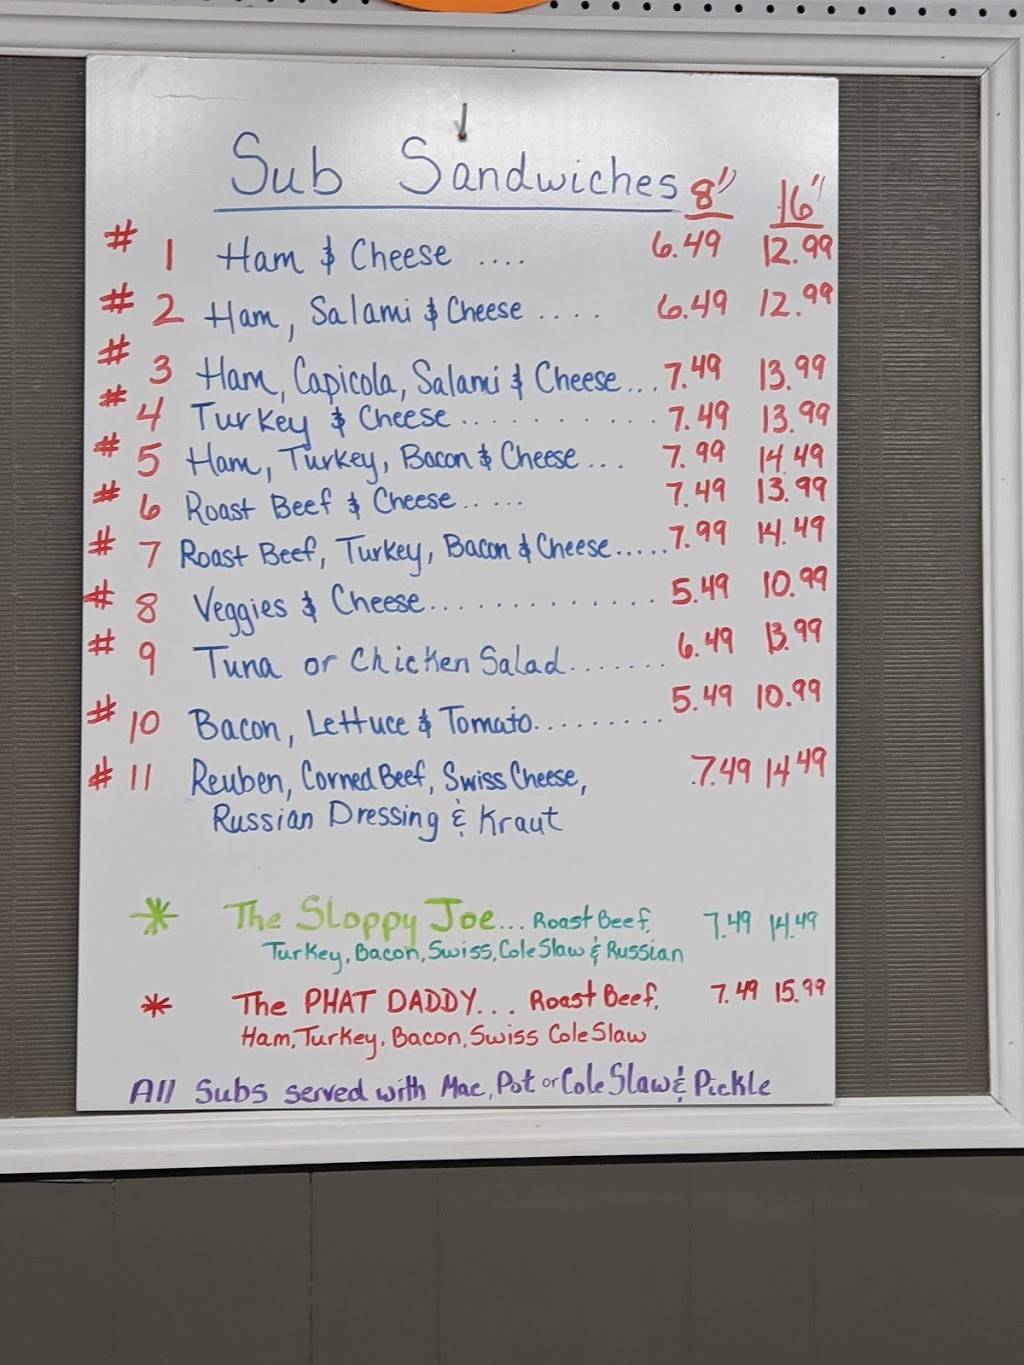 Sub Sandwiches 8" 16"
# 1 Ham & Cheese .... 6.49 12.99
# 2 Ham, Salami & Cheese .... 6.49 12.99
# 3 Ham, Capicola, Salami & Cheese... 7.49 13.99
# 4 Turkey & Cheese........... 7.49 13.99
# 5 Ham, Turkey, Bacon & Cheese... 7.99 14.49
# 6 Roast Beef & Cheese..... 7.49 13.99
# 7 Roast Beef, Turkey, Bacon & Cheese..... 7.99 14.49
# 8 Veggies & Cheese............. 5.49 10.99
# 9 Tuna or Chicken Salad....... 6.49 13.99
# 10 Bacon, Lettuce & Tomato......... 5.49 10.99
# 11 Reuben, Corned Beef, Swiss Cheese, 7.49 14.49
Russian Dressing & Kraut
* The Sloppy Joe... Roast Beef, 7.49 14.49
Turkey, Bacon, Swiss, Cole Slaw & Russian
* The PHAT DADDY... Roast Beef, 7.49 15.99
Ham, Turkey, Bacon, Swiss Cole Slaw
All Subs served with Mac, Pot or Cole Slaw & Pickle